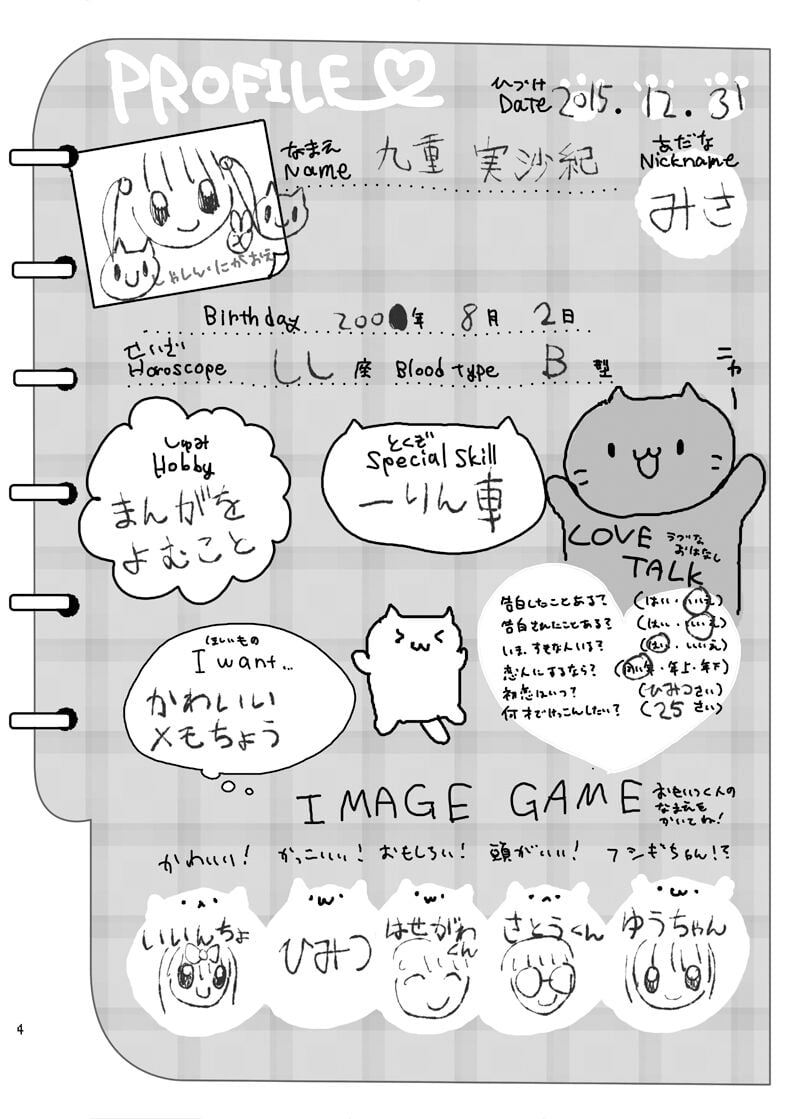 PROFILE
ひづけ
DATE 2015. 12. 31
なまえ
Name 九重 実沙紀
あだな
Nickname
みさ
しゃしん・にがおえ
Birthday 200 年 8月 2日
せいざ
Horoscope しし座 Blood type B型
ニャー
しゅみ
Hobby
まんがを
よむこと
とくぎ
Special Skill
一りん車
LOVE
TALK
ラブな
おはなし
告白したことある? (はい・いいえ)
告白されたことある? (はい・いいえ)
いま、すきな人いる? (はい・いいえ)
恋人にするなら? (同い年・年上・年下)
初恋はいつ? (ひみつさい)
何才でけっこんしたい? (25さい)
ほしいもの
I want...
かわいい
メモちょう
IMAGE GAME
おもいつく人の
なまえを
かいてね!
かわいい! かっこいい! おもしろい! 頭がいい! フシギちゃん!?
いいんちょ
ひみつ
はせがわ
くん
さとうくん
ゆうちゃん
4